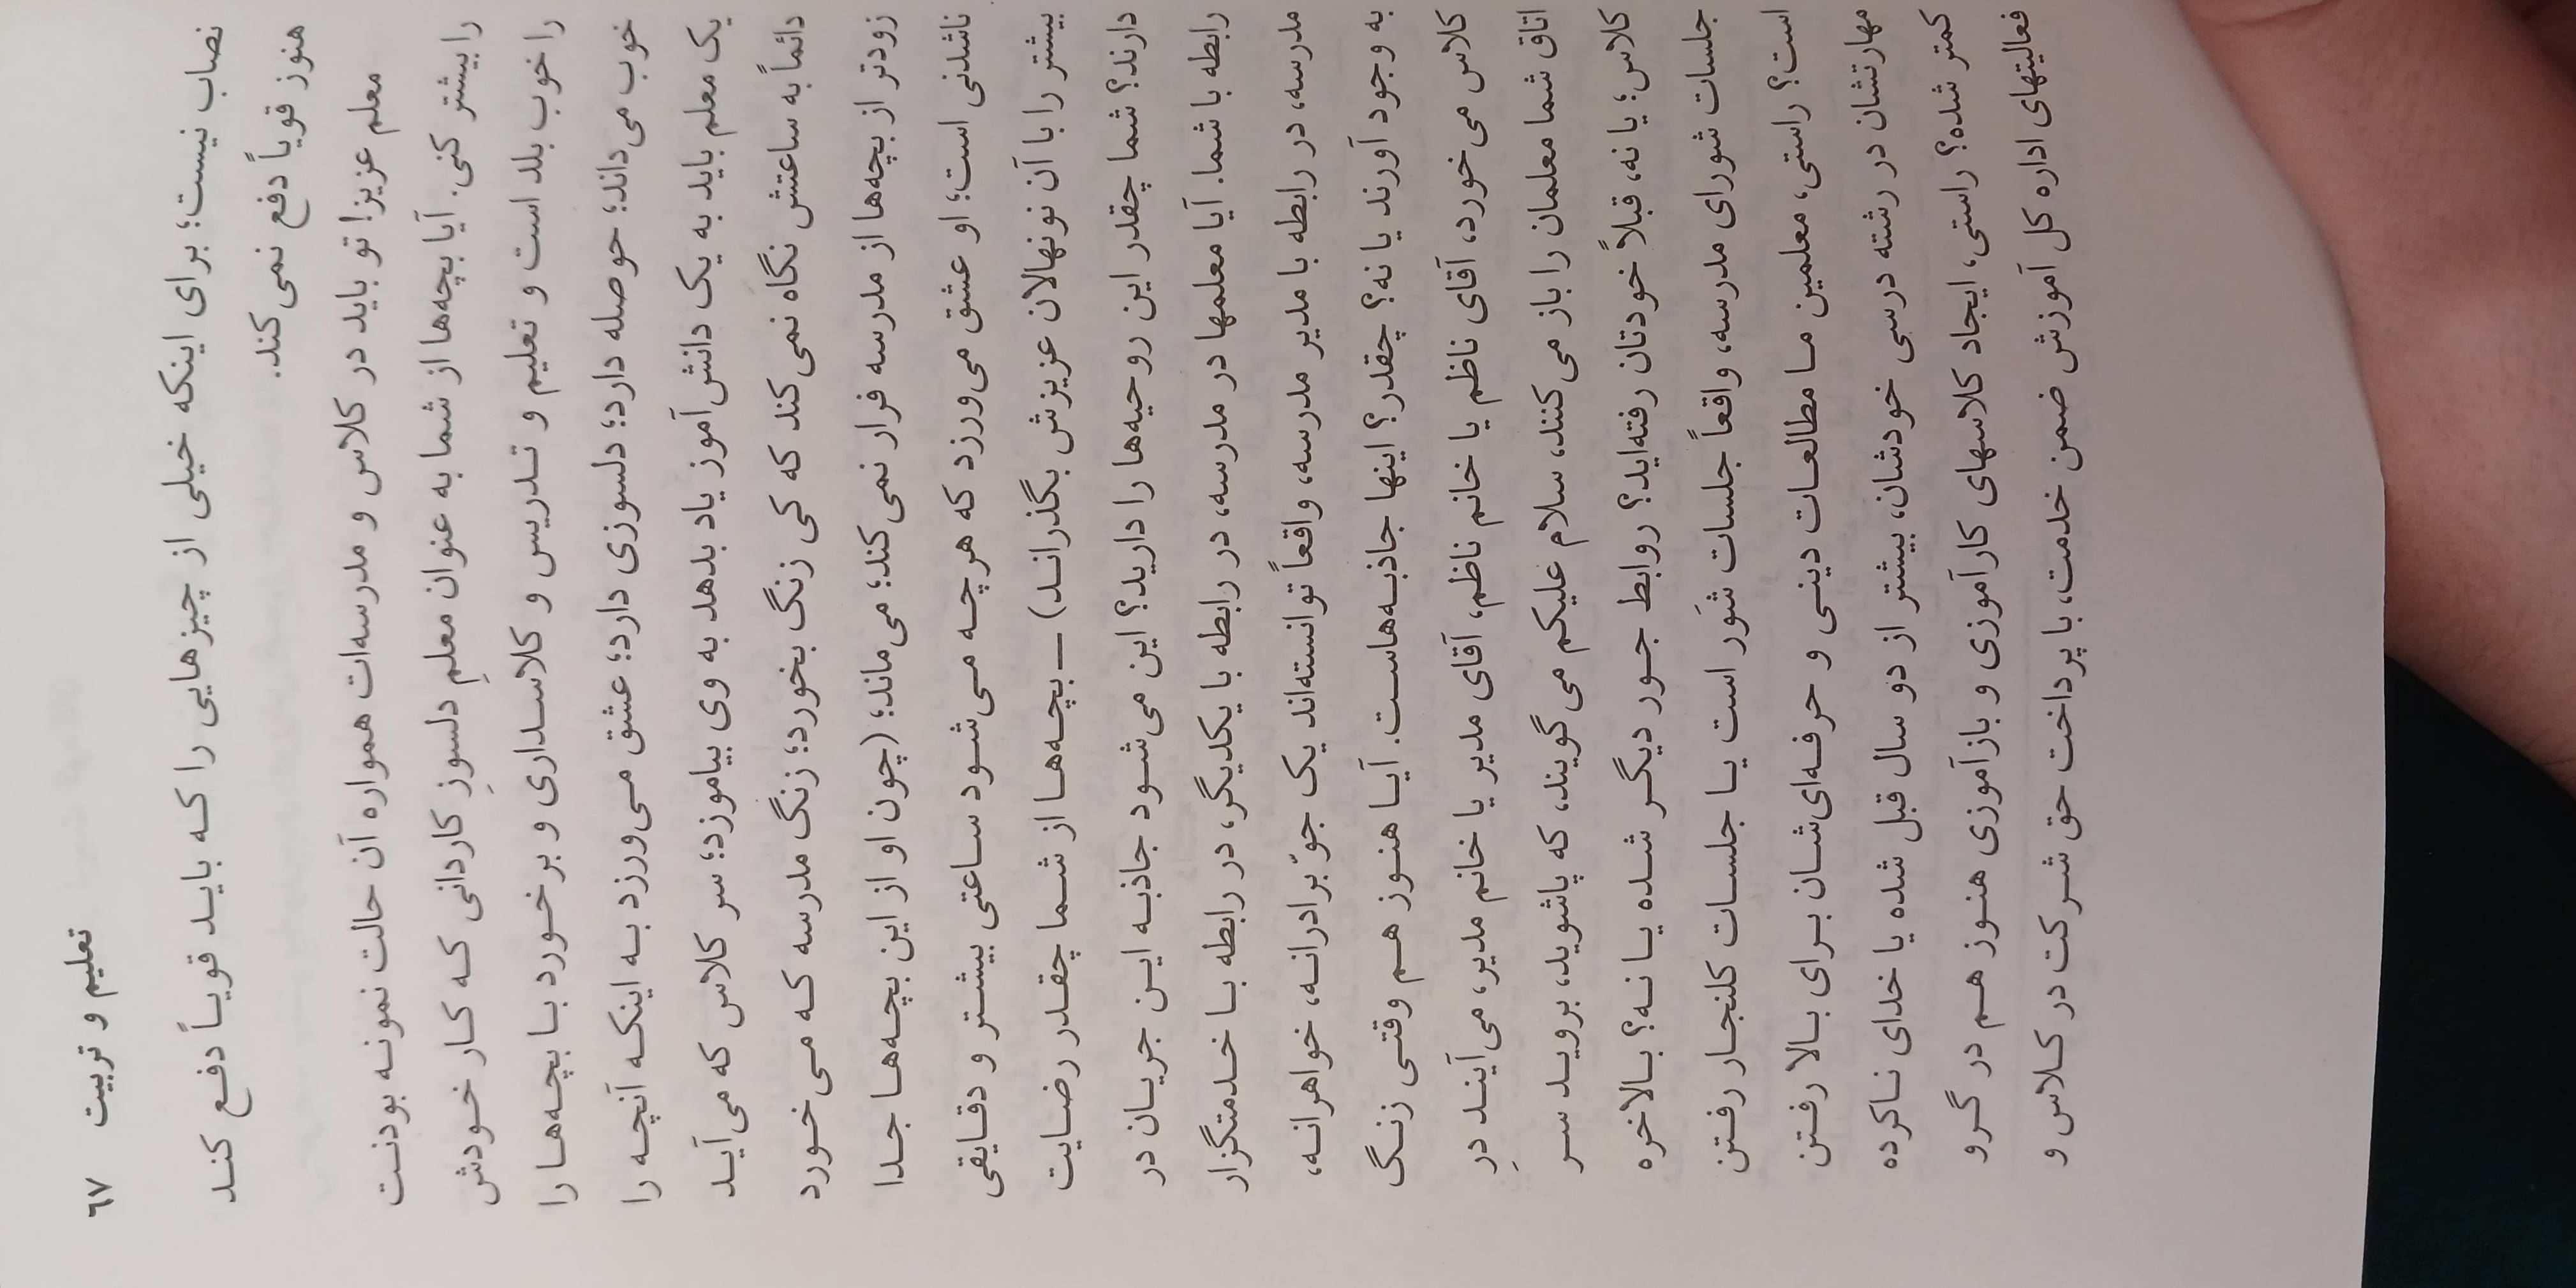 تعلیم و تربیت ۶۷
نصاب نیست؛ برای اینکه خیلی از چیزهایی را که باید قویاً دفع کند
هنوز قویاً دفع نمی‌کند.
معلم عزیز! تو باید در کلاس و مدرسه‌ات همواره آن حالت نمونه بودنت
را بیشتر کنی. آیا بچه‌ها از شما به عنوان معلمِ دلسوزِ کاردانی که کار خودش
را خوب بلد است و تعلیم و تدریس و کلاسداری و برخورد با بچه‌ها را
خوب می‌داند؛ حوصله دارد؛ دلسوزی دارد؛ عشق می‌ورزد به اینکه آنچه را
یک معلم باید به یک دانش‌آموز یاد بدهد به وی بیاموزد؛ سر کلاس که می‌آید
دائماً به ساعتش نگاه نمی‌کند که کی زنگ بخورد؛ زنگ مدرسه که می‌خورد
زودتر از بچه‌ها از مدرسه فرار نمی‌کند؛ می‌ماند؛ (چون او از این بچه‌ها جدا
ناشدنی است؛ او عشق می‌ورزد که هرچه می‌شود ساعتی بیشتر و دقایقی
بیشتر را با آن نونهالان عزیزش بگذراند) ــ بچه‌ها از شما چقدر رضایت
دارند؟ شما چقدر این روحیه‌ها را دارید؟ این می‌شود جاذبه این جریان در
رابطه با شما. آیا معلمها در مدرسه، در رابطه با یکدیگر، در رابطه با خدمتگزار
مدرسه، در رابطه با مدیر مدرسه، واقعاً توانسته‌اند یک جوّ برادرانه، خواهرانه،
به وجود آورند یا نه؟ چقدر؟ اینها جاذبه‌هاست. آیا هنوز هم وقتی زنگ
کلاس می‌خورد، آقای ناظم یا خانم ناظم، آقای مدیر یا خانم مدیر، می‌آیند درِ
اتاق شما معلمان را باز می‌کنند، سلام علیکم می‌گویند، که پاشوید، بروید سر
کلاس؛ یا نه، قبلاً خودتان رفته‌اید؟ روابط جور دیگر شده یا نه؟ بالاخره
جلسات شورای مدرسه، واقعاً جلسات شَور است یا جلسات کلنجار رفتن
است؟ راستی، معلمین ما مطالعات دینی و حرفه‌ای‌شان برای بالا رفتن
مهارتشان در رشته درسی خودشان، بیشتر از دو سال قبل شده یا خدای ناکرده
کمتر شده؟ راستی، ایجاد کلاسهای کارآموزی و بازآموزی هنوز هم در گرو
فعالیتهای اداره کل آموزش ضمن خدمت، با پرداخت حق شرکت در کلاس و